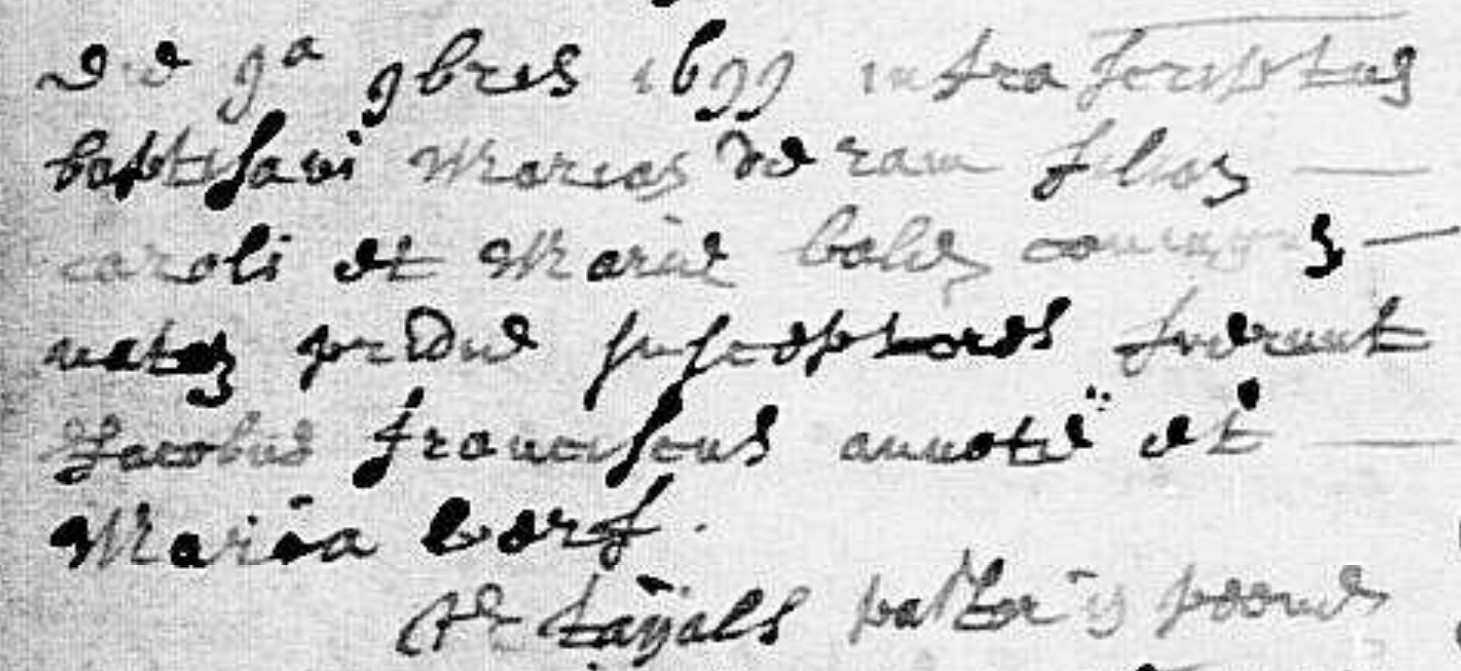 Die 9a 9bris 1699 infra scriptus
baptisavi Mariam de rau filiam
caroli et Mariae conjugum
natam pridie susceptores fuerunt
Jacobus franciscus annotië et
Maria
pastor